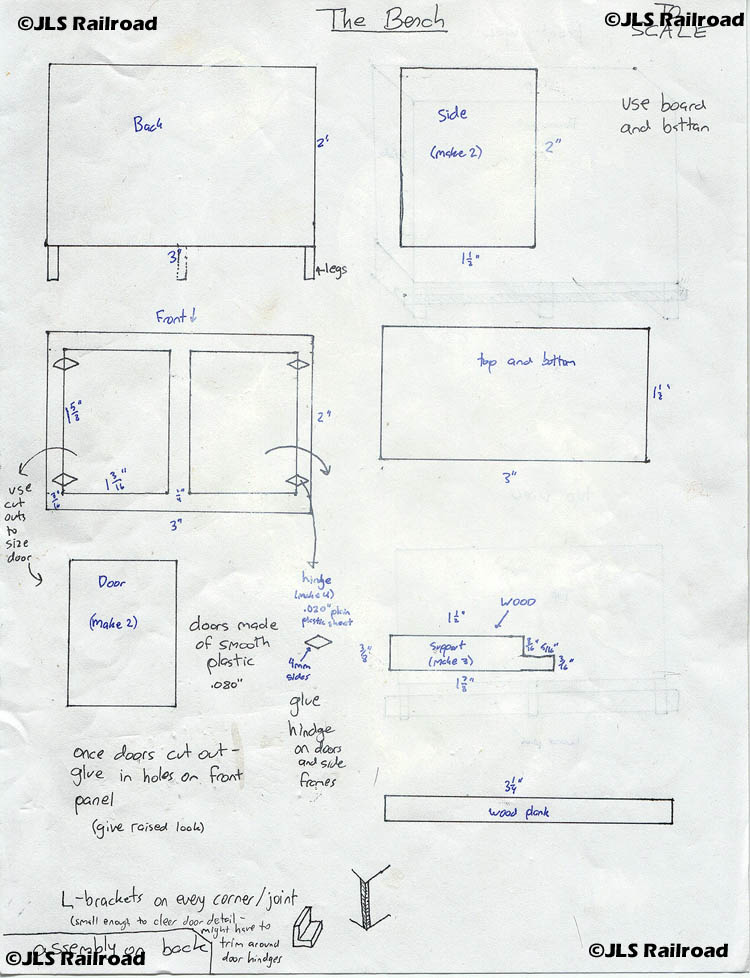 ©JLS Railroad
The Bench
©JLS Railroad
TO
SCALE
Back
2'
3"
legs
Side
(make 2)
2"
1 1/2"
use board
and battan
Front↓
1 5/8"
1 3/16"
3/16"
1/4"
2"
3"
top and bottom
1 1/2"
3"
use
cut
outs
to
size
door
Door
(make 2)
doors made
of smooth
plastic
.080"
hinge
(make 4)
.020" plain
plastic sheet
4mm
sides
glue
hindge
on doors
and side
frames
WOOD
1 1/2"
3/8"
support
(make 3)
3/16"
5/16"
3/16"
1 7/8"
once doors cut out -
glue in holes on front
panel
(give raised look)
3 1/4"
wood plank
L-brackets on every corner/joint
(small enough to clear door detail -
might have to
trim around
door hindges
assembly on back
©JLS Railroad
©JLS Railroad